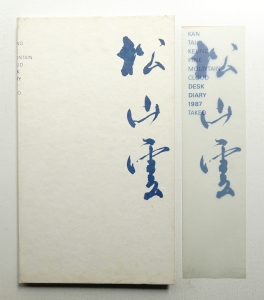 松山雲
KAN
TAI
PINE
MOUNTAIN
CLOUD
DESK
DIARY
1987
TAKEO
松山雲